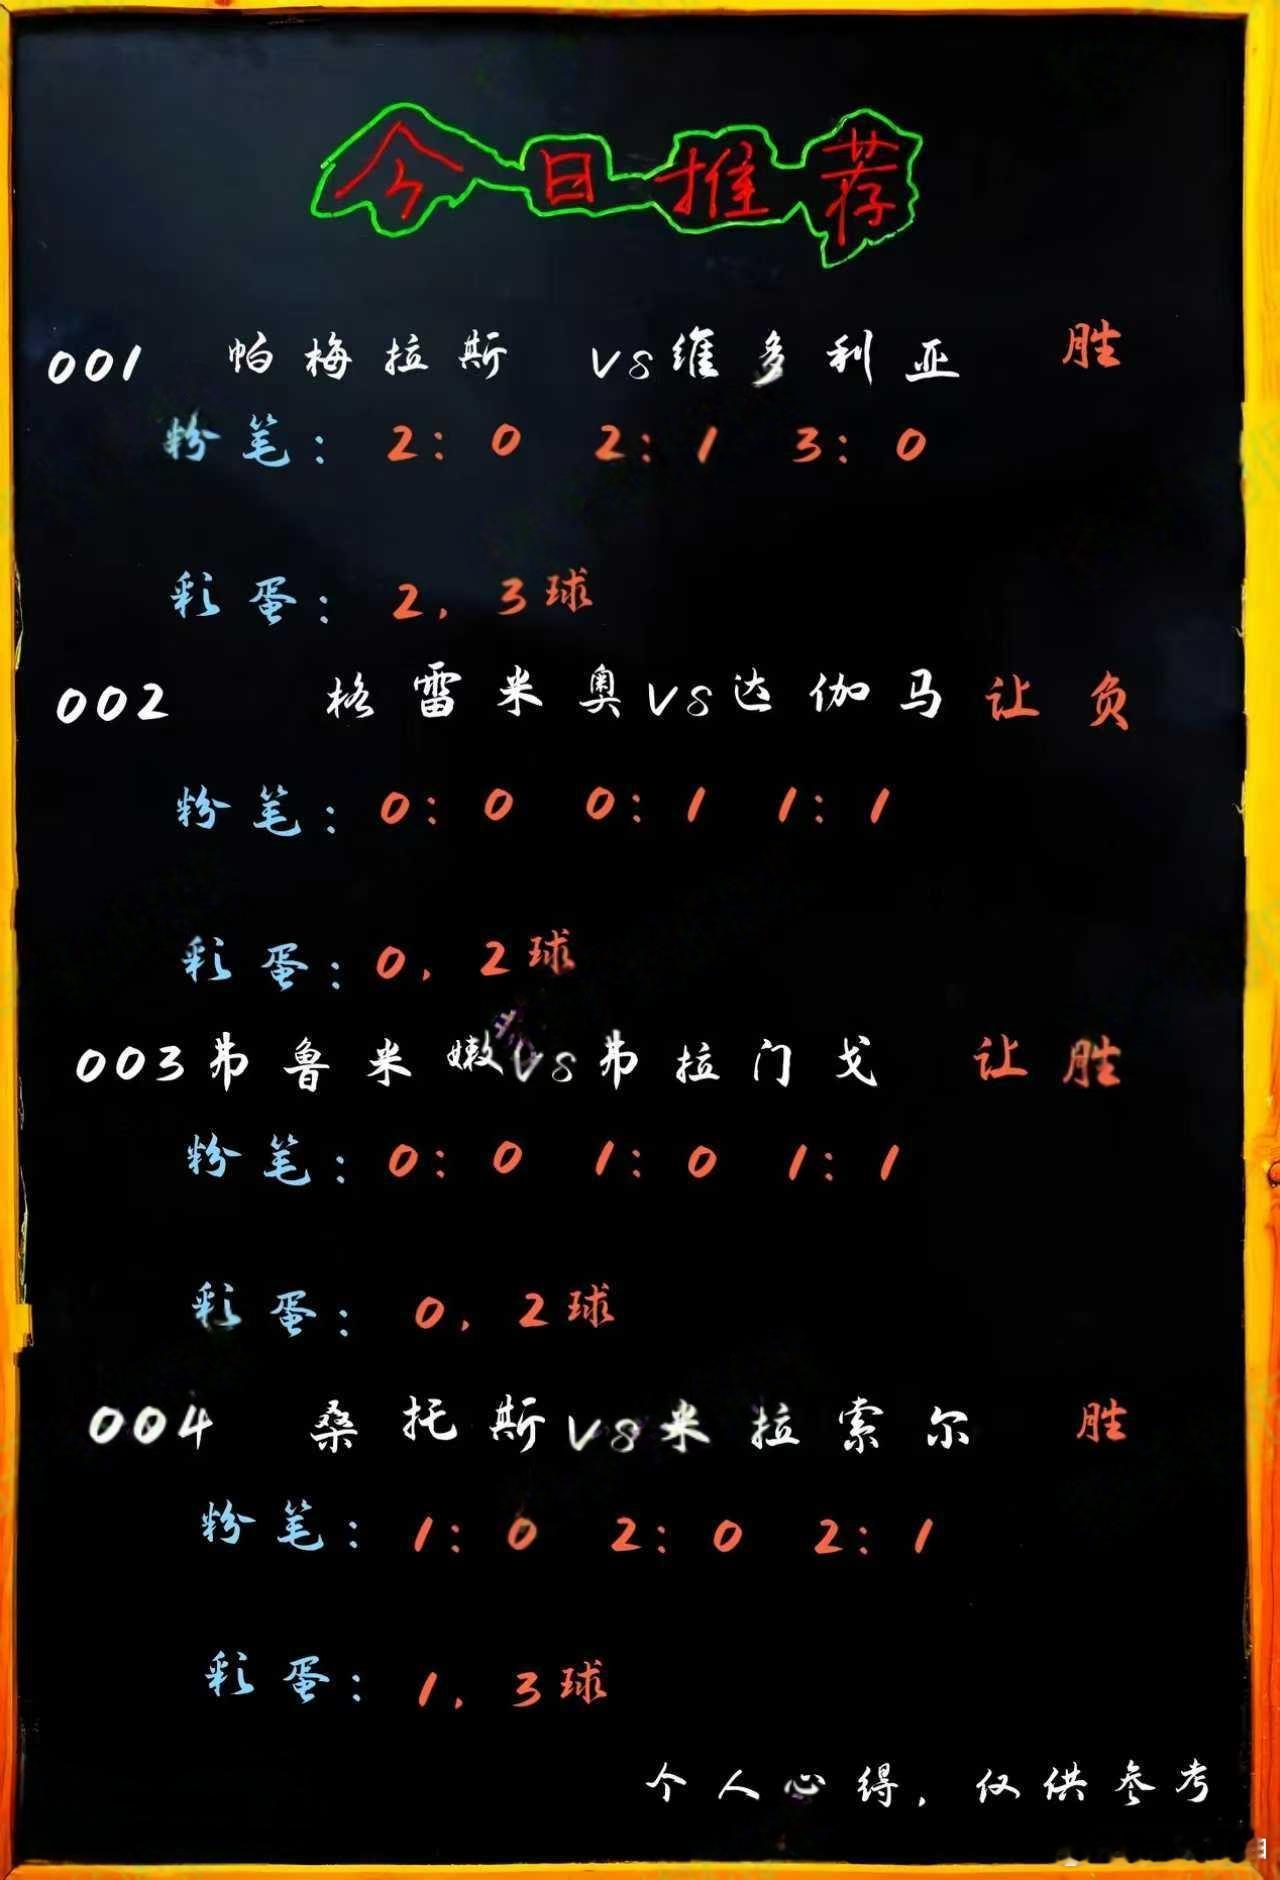 今日推荐
001 帕梅拉斯 VS维多利亚 胜
粉笔: 2:0 2:1 3:0
彩蛋: 2, 3球
002 格雷米奥VS达伽马 让负
粉笔: 0:0 0:1 1:1
彩蛋: 0, 2球
003弗鲁米嫩VS弗拉门戈 让胜
粉笔: 0:0 1:0 1:1
彩蛋: 0, 2球
004 桑托斯VS米拉索尔 胜
粉笔: 1:0 2:0 2:1
彩蛋: 1, 3球
个人心得, 仅供参考